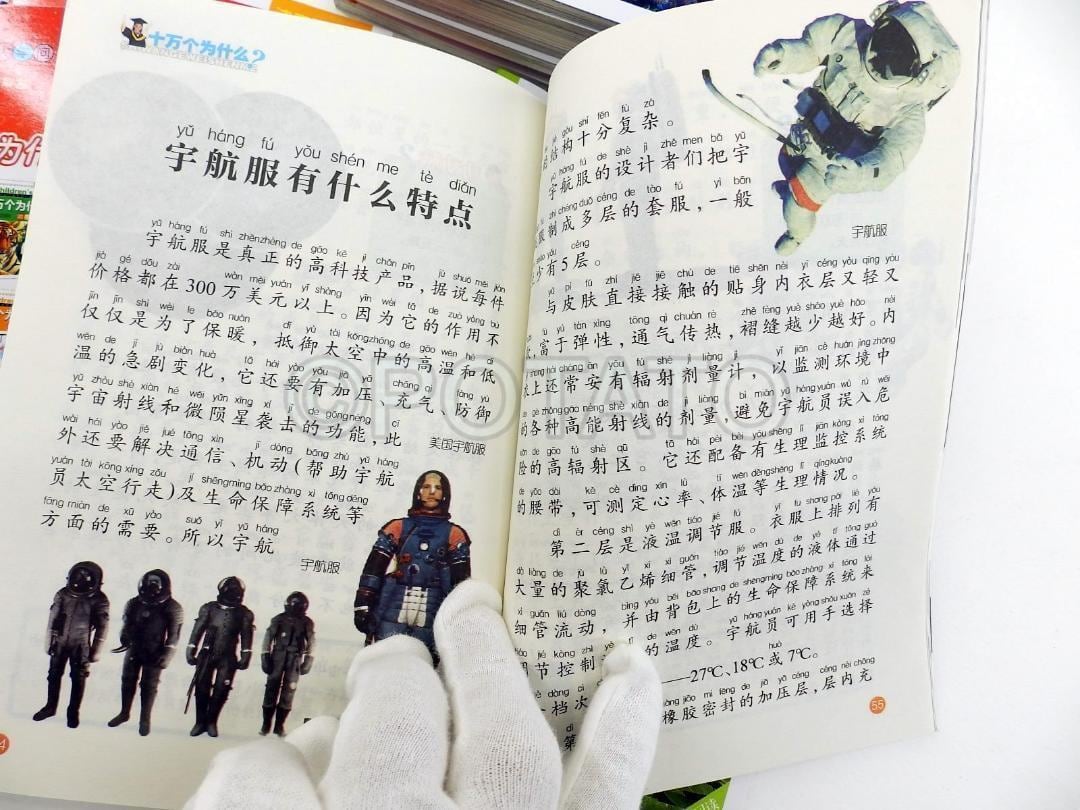 十万个为什么?
SHIWANGEWEISHENME
yǔ háng fú yǒu shén me tè diǎn
宇航服有什么特点
宇航服是真正的高科技产品,据说每件
价格都在300万美元以上。因为它的作用不
仅仅是为了保暖,抵御太空中的高温和低
温的急剧变化,它还要有加压、充气、防御
宇宙射线和微陨星袭击的功能,此
外还要解决通信、机动(帮助宇航
员太空行走)及生命保障系统等
方面的需要。所以宇航
美国宇航服
宇航服
结构十分复杂。
宇航服的设计者们把宇
制成多层的套服,一般
少有5层。
宇航服
与皮肤直接接触的贴身内衣层又轻又
,富于弹性,通气传热,褶缝越少越好。内
衣上还常安有辐射剂量计,以监测环境中
的各种高能射线的剂量,避免宇航员误入危
险的高辐射区。它还配备有生理监控系统
的腰带,可测定心率、体温等生理情况。
第二层是液温调节服。衣服上排列有
大量的聚氯乙烯细管,调节温度的液体通过
细管流动,并由背包上的生命保障系统来
调节控制 的温度。宇航员可用手选择
档次 ——27℃、18℃或7℃。
第 橡胶密封的加压层,层内充
55
©POTATO